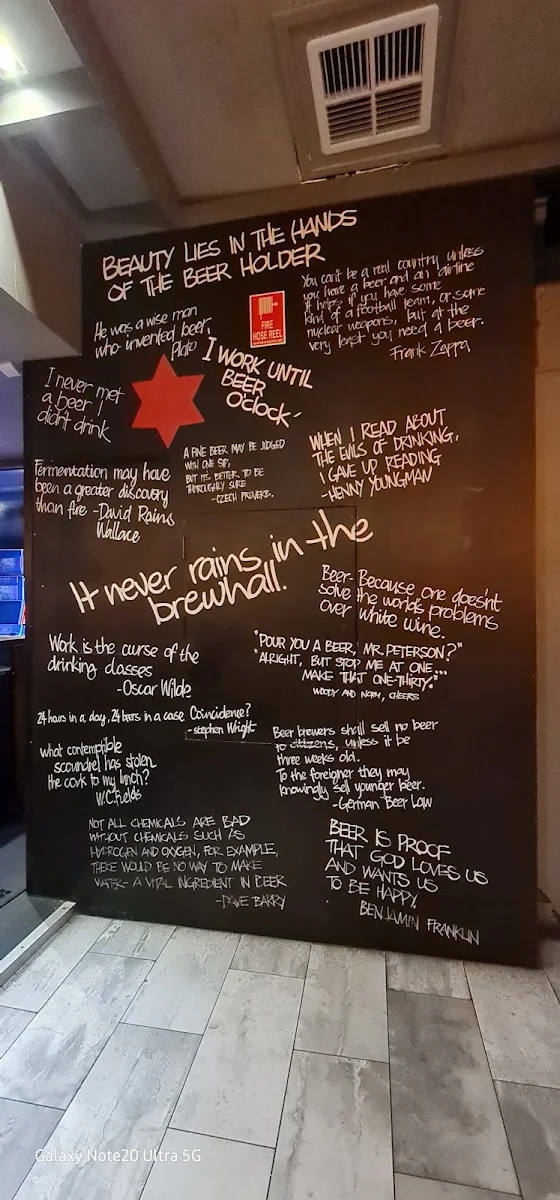 BEAUTY LIES IN THE HANDS
OF THE BEER HOLDER
He was a wise man
who invented beer,
Plato
FIRE
HOSE REEL
You can't be a real country unless
you have a beer and an airline
it helps if you have some
kind of a football team, or some
nuclear weapons, but at the
very least you need a beer.
Frank Zappa
I WORK UNTIL
BEER
O'clock'
I never met
a beer I
didn't drink
A FINE BEER MAY BE JUDGED
WITH ONE SIP,
BUT ITS BETTER TO BE
THOROUGHLY SURE
-CZECH PROVERB.
WHEN I READ ABOUT
THE EVILS OF DRINKING,
I GAVE UP READING
-HENNY YOUNGMAN
Fermentation may have
been a greater discovery
than fire -David Rains
Wallace
It never rains in the
brewhall.
Beer- Because one doesn't
solve the worlds problems
over white wine.
Work is the curse of the
drinking classes
-Oscar Wilde
"POUR YOU A BEER, MR. PETERSON?"
"ALRIGHT, BUT STOP ME AT ONE...
MAKE THAT ONE-THIRTY."
WOODY AND NORM, CHEERS
24 hours in a day, 24 beers in a case Coincidence?
-stephen Wright
Beer brewers shall sell no beer
to citizens, unless it be
three weeks old.
To the foreigner they may
knowingly sell younger beer.
-German Beer Law
what contemptible
scoundrel has stolen
the cork to my lunch?
W.C.Fields
NOT ALL CHEMICALS ARE BAD
WITHOUT CHEMICALS SUCH AS
HYDROGEN AND OXYGEN, FOR EXAMPLE,
THERE WOULD BE NO WAY TO MAKE
WATER- A VITAL INGREDIENT IN BEER
-DAVE BARRY
BEER IS PROOF
THAT GOD LOVES US
AND WANTS US
TO BE HAPPY.
BENJAMIN FRANKLIN
Galaxy Note20 Ultra 5G